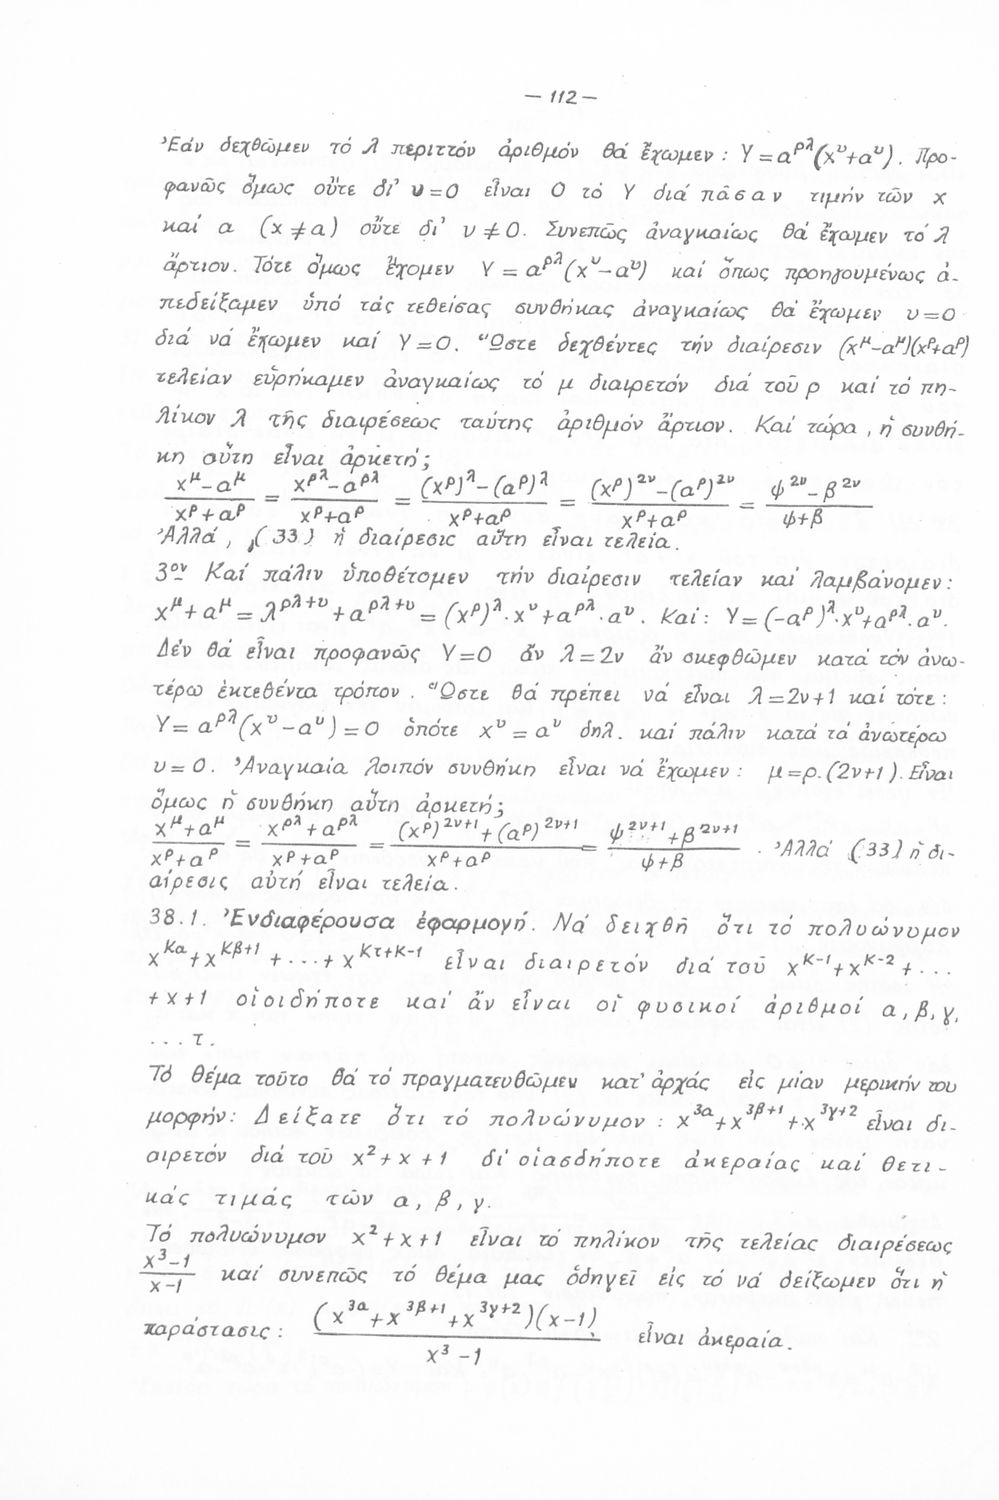 — 112 —
Ἐάν δεχθῶμεν τό λ περιττόν ἀριθμόν θά ἔχωμεν : Υ = α^ρλ(x^υ+α^υ). Προ-
φανῶς ὅμως οὔτε δι' υ=0 εἶναι 0 τό Υ διά πᾶσαν τιμήν τῶν x
καί α (x ≠ α) οὔτε δι' υ ≠ 0. Συνεπῶς ἀναγκαίως θά ἔχωμεν τό λ
ἄρτιον. Τότε ὅμως ἔχομεν Υ = α^ρλ(x^υ-α^υ) καί ὅπως προηγουμένως ἀ-
πεδείξαμεν ὑπό τάς τεθείσας συνθήκας ἀναγκαίως θά ἔχωμεν υ=0
διά νά ἔχωμεν καί Υ=0. Ὥστε δεχθέντες τήν διαίρεσιν (x^μ-α^μ)(x^ρ+α^ρ)
τελείαν εὑρήκαμεν ἀναγκαίως τό μ διαιρετόν διά τοῦ ρ καί τό πη-
λίκον λ τῆς διαιρέσεως ταύτης ἀριθμόν ἄρτιον. Καί τώρα , ἡ συνθή-
κη αὕτη εἶναι ἀρκετή ;
(x^μ-α^μ)/(x^ρ+α^ρ) = (x^ρλ-α^ρλ)/(x^ρ+α^ρ) = ((x^ρ)^λ-(α^ρ)^λ)/(x^ρ+α^ρ) = ((x^ρ)^2ν-(α^ρ)^2ν)/(x^ρ+α^ρ) = (ψ^2ν-β^2ν)/(ψ+β)
Ἀλλά , (33) ἡ διαίρεσις αὕτη εἶναι τελεία.
3ον Καί πάλιν ὑποθέτομεν τήν διαίρεσιν τελείαν καί λαμβάνομεν :
x^μ+α^μ = λ^ρλ+υ + α^ρλ+υ = (x^ρ)^λ·x^υ+α^ρλ·α^υ. Καί : Υ= (-α^ρ)^λ·x^υ+α^ρλ·α^υ.
Δέν θά εἶναι προφανῶς Υ=0 ἄν λ=2ν ἄν σκεφθῶμεν κατά τόν ἀνω-
τέρω ἐκτεθέντα τρόπον. Ὥστε θά πρέπει νά εἶναι λ=2ν+1 καί τότε :
Υ= α^ρλ(x^υ-α^υ)=0 ὁπότε x^υ = α^υ δηλ. καί πάλιν κατά τά ἀνωτέρω
υ=0. Ἀναγκαία λοιπόν συνθήκη εἶναι νά ἔχωμεν : μ=ρ.(2ν+1). Εἶναι
ὅμως ἡ συνθήκη αὕτη ἀρκετή ;
(x^μ+α^μ)/(x^ρ+α^ρ) = (x^ρλ+α^ρλ)/(x^ρ+α^ρ) = ((x^ρ)^2ν+1+(α^ρ)^2ν+1)/(x^ρ+α^ρ) = (ψ^2ν+1+β^2ν+1)/(ψ+β) . Ἀλλά (33) ἡ δι-
αίρεσις αὐτή εἶναι τελεία.
38.1. Ἐνδιαφέρουσα ἐφαρμογή. Νά δειχθῆ ὅτι τό πολυώνυμον
x^Κα+x^Κβ+1 + ... + x^Κτ+Κ-1 εἶναι διαιρετόν διά τοῦ x^Κ-1+x^Κ-2+ ...
+x+1 οἱοιδήποτε καί ἄν εἶναι οἱ φυσικοί ἀριθμοί α, β, γ,
... τ.
Τό θέμα τοῦτο θά τό πραγματευθῶμεν κατ' ἀρχάς εἰς μίαν μερικήν του
μορφήν: Δείξατε ὅτι τό πολυώνυμον : x^3α+x^3β+1+x^3γ+2 εἶναι δι-
αιρετόν διά τοῦ x²+x+1 δι' οἱασδήποτε ἀκεραίας καί θετι-
κάς τιμάς τῶν α, β, γ.
Τό πολυώνυμον x²+x+1 εἶναι τό πηλίκον τῆς τελείας διαιρέσεως
(x³-1)/(x-1) καί συνεπῶς τό θέμα μας ὁδηγεῖ εἰς τό νά δείξωμεν ὅτι ἡ
παράστασις : ((x^3α+x^3β+1+x^3γ+2)(x-1))/(x³-1) εἶναι ἀκεραία.